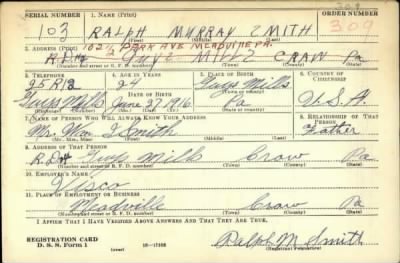 309
SERIAL NUMBER 1. NAME (Print) ORDER NUMBER
103 RALPH MURRAY SMITH 309
(First) (Middle) (Last)
2. ADDRESS (Print) 1021/2 PARK AVE MEADVILLE PA.
R.D.#4 GUYS MILLS CRAW Pa
(Number and street or R. F. D. number) (Town) (County) (State)
3. TELEPHONE 4. AGE IN YEARS 5. PLACE OF BIRTH 6. COUNTRY OF CITIZENSHIP
25 R12 24 Guys Mills
(Town or county)
DATE OF BIRTH
Guys Mills June 27 1916 Pa U.S.A.
(Exchange) (Number) (Mo.) (Day) (Yr.) (State or country)
7. NAME OF PERSON WHO WILL ALWAYS KNOW YOUR ADDRESS 8. RELATIONSHIP OF THAT PERSON
Mr. Wm Smith Father
(Mr., Mrs., Miss) (First) (Middle) (Last)
9. ADDRESS OF THAT PERSON
R.D.#4 Guys Mills Craw Pa
(Number and street or R. F. D. number) (Town) (County) (State)
10. EMPLOYER'S NAME
Visco
11. PLACE OF EMPLOYMENT OR BUSINESS
Meadville Craw Pa
(Number and street or R. F. D. number) (Town) (County) (State)
I AFFIRM THAT I HAVE VERIFIED ABOVE ANSWERS AND THAT THEY ARE TRUE.
REGISTRATION CARD
D. S. S. Form 1 (over) 16—17105 Ralph M. Smith
(Registrant's signature)